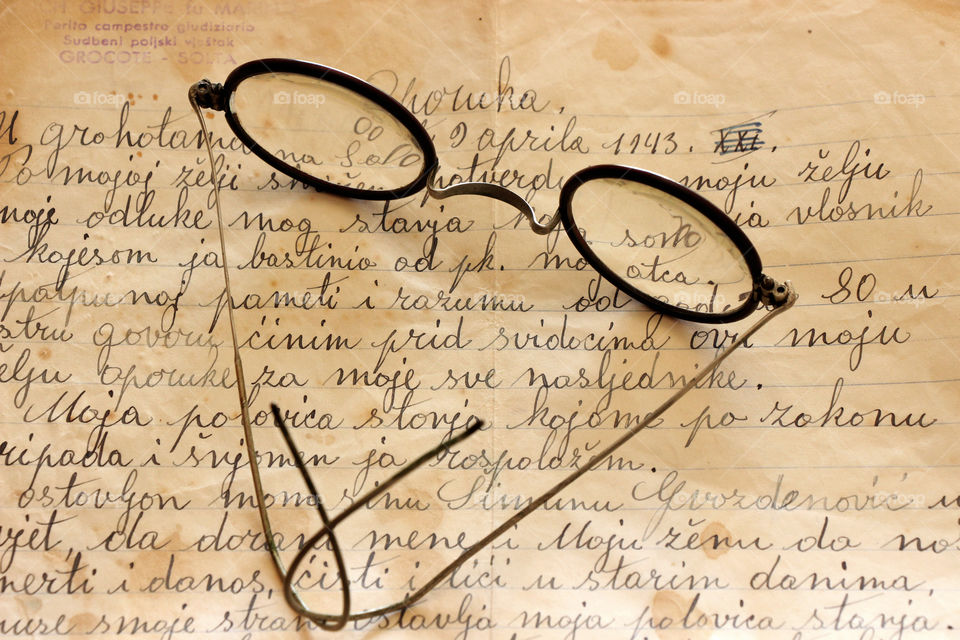 GIUSEPPE fu MA
Perito campestre giudiziario
Sudbeni poljski vještak
GROCOTE - SOLTA
Oporuka.
U grohotama na Šolti 9 aprila 1943. XXI.
Po mojoj želji potverdu moju želju
moje odluke mog stanja koja vlosnik
kojesom ja bastinio od pk. mog otca.
pameti i razumu od 80 u
govoru ćinim prid svidocima ovu moju
želju oporuke za moje sve nasljednike.
Moja polovica stanja kojome po zakonu
pripada i švjomen ja rospoložem.
ostavljon momo sinu Šimunu Gvozdenović
da dorani mene i Moju ženu do
smerti i danas čisti i lići u starim danima,
smoje strani ostavlja moja polovica stanja.